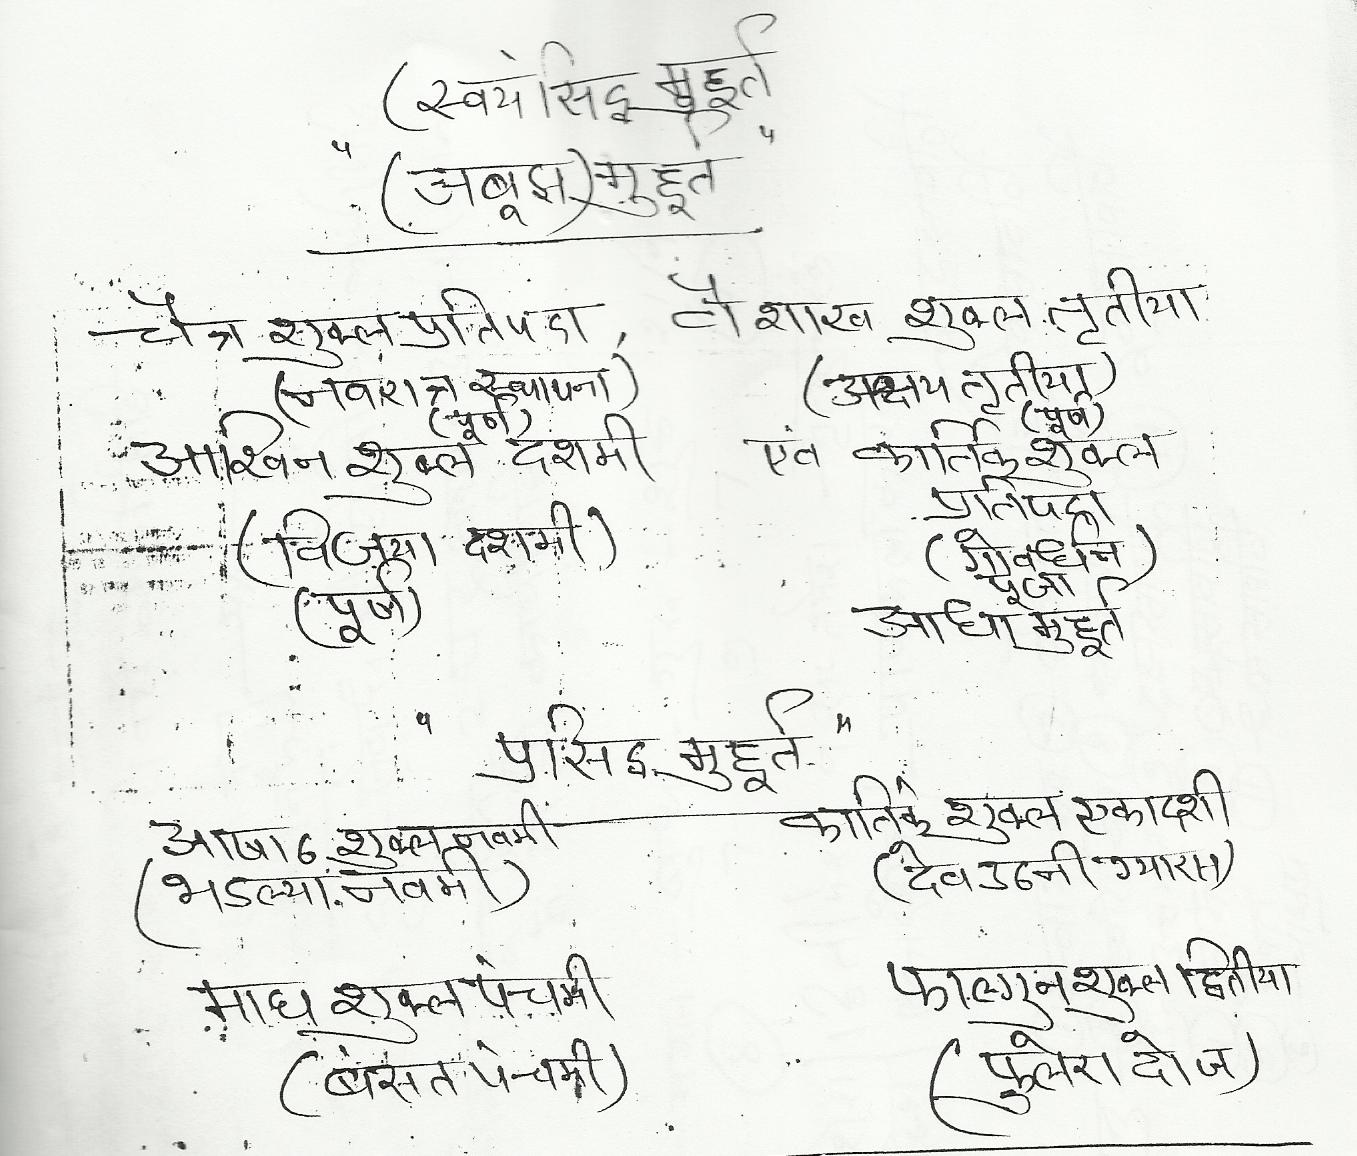 (स्वयं सिद्ध मुहूर्त
"(अबूझ) मुहूर्त"
चैत्र शुक्ल प्रतिपदा, वैशाख शुक्ल तृतीया
(नवरात्र स्थापना) (अक्षय तृतीया)
(पूर्ण) (पूर्ण)
आश्विन शुक्ल दशमी एवं कार्तिक शुक्ल
प्रतिपदा
(विजया दशमी) (गोवर्धन
पूजा)
(पूर्ण) आधा मुहूर्त
"प्रसिद्ध मुहूर्त"
आषाढ शुक्ल नवमी कार्तिक शुक्ल एकादशी
(भडल्या नवमी) (देव उठनी ग्यारस)
माघ शुक्ल पंचमी फाल्गुन शुक्ल द्वितीया
(बंसत पंचमी) (फुलेरा दोज)